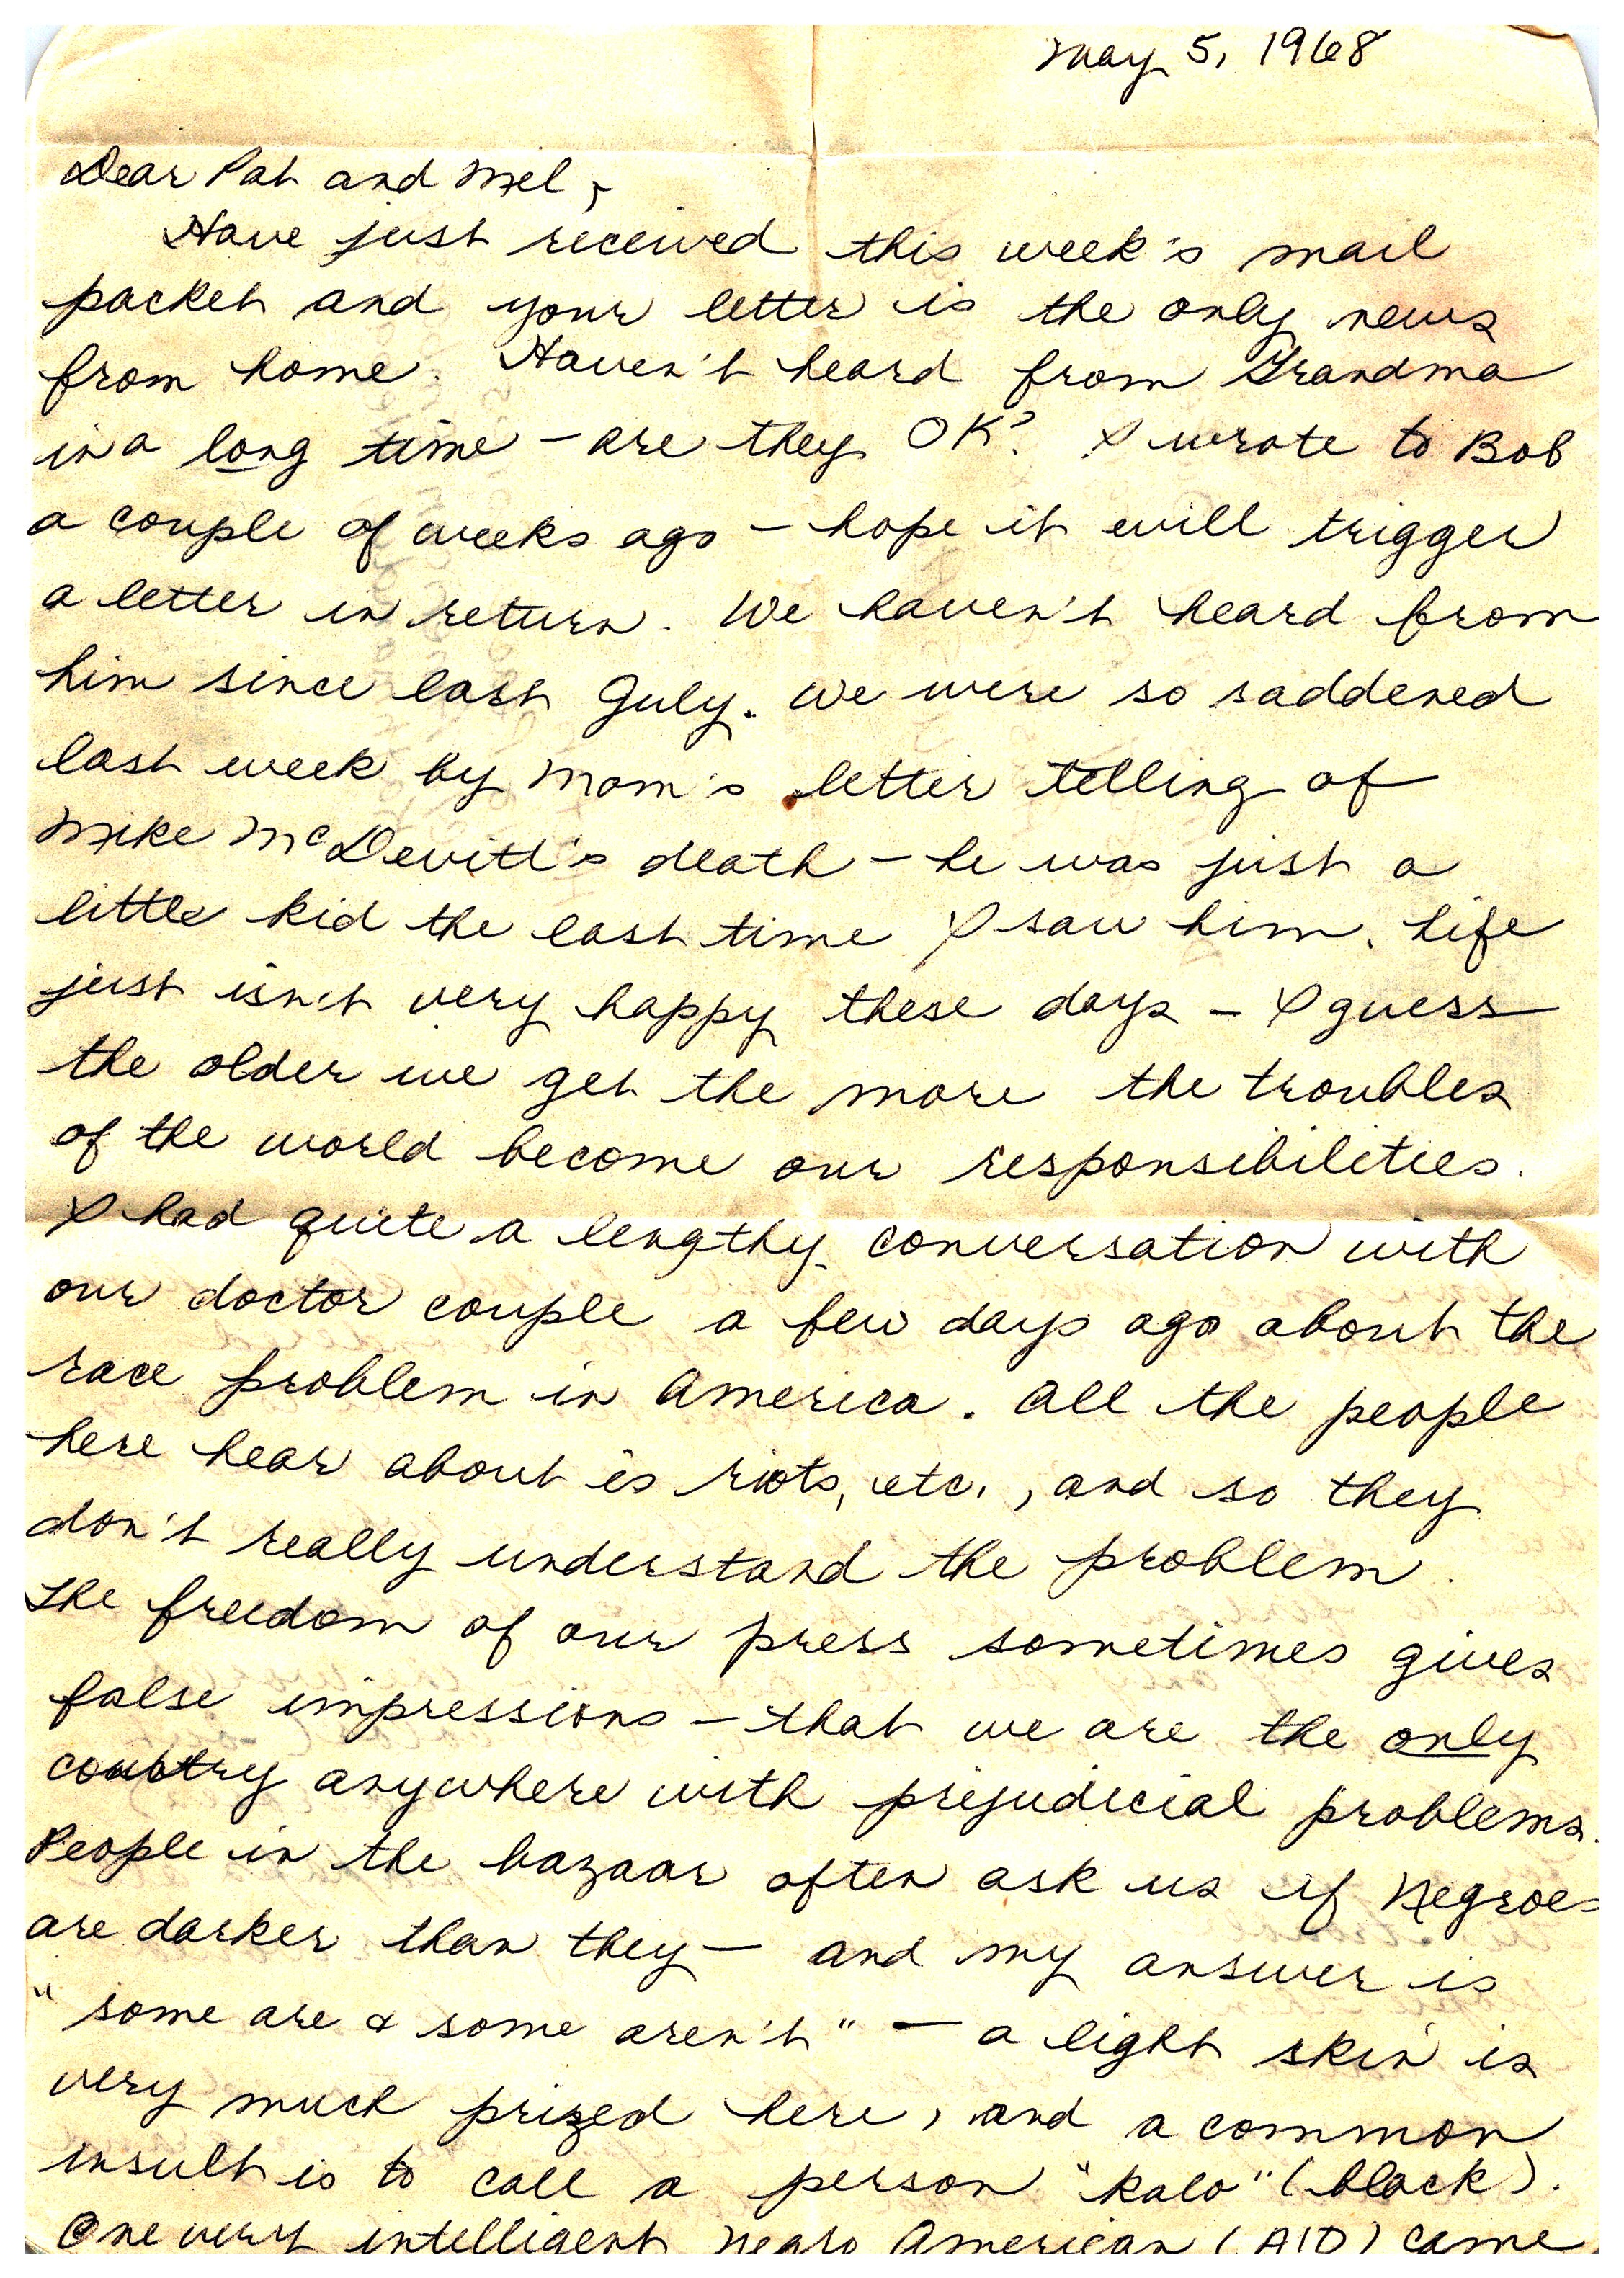 May 5, 1968
Dear Pat and Mel,
Have just received this week's mail
packet and your letter is the only news
from home. Haven't heard from Grandma
in a long time – are they OK? I wrote to Bob
a couple of weeks ago – hope it will trigger
a letter in return. We haven't heard from
him since last July. We were so saddened
last week by Mom's letter telling of
Mike McDevitt's death – he was just a
little kid the last time I saw him. Life
just isn't very happy these days – I guess
the older we get the more the troubles
of the world become our responsibilities.
I had quite a lengthy conversation with
our doctor couple a few days ago about the
race problem in America. All the people
here hear about is riots, etc., and so they
don't really understand the problem.
The freedom of our press sometimes gives
false impressions – that we are the only
country anywhere with prejudicial problems.
People in the bazaar often ask us if Negroes
are darker than they – and my answer is
"some are & some aren't" – a light skin is
very much prized here, and a common
insult is to call a person "kalo" (black).
One very intelligent Negro American (AID) came